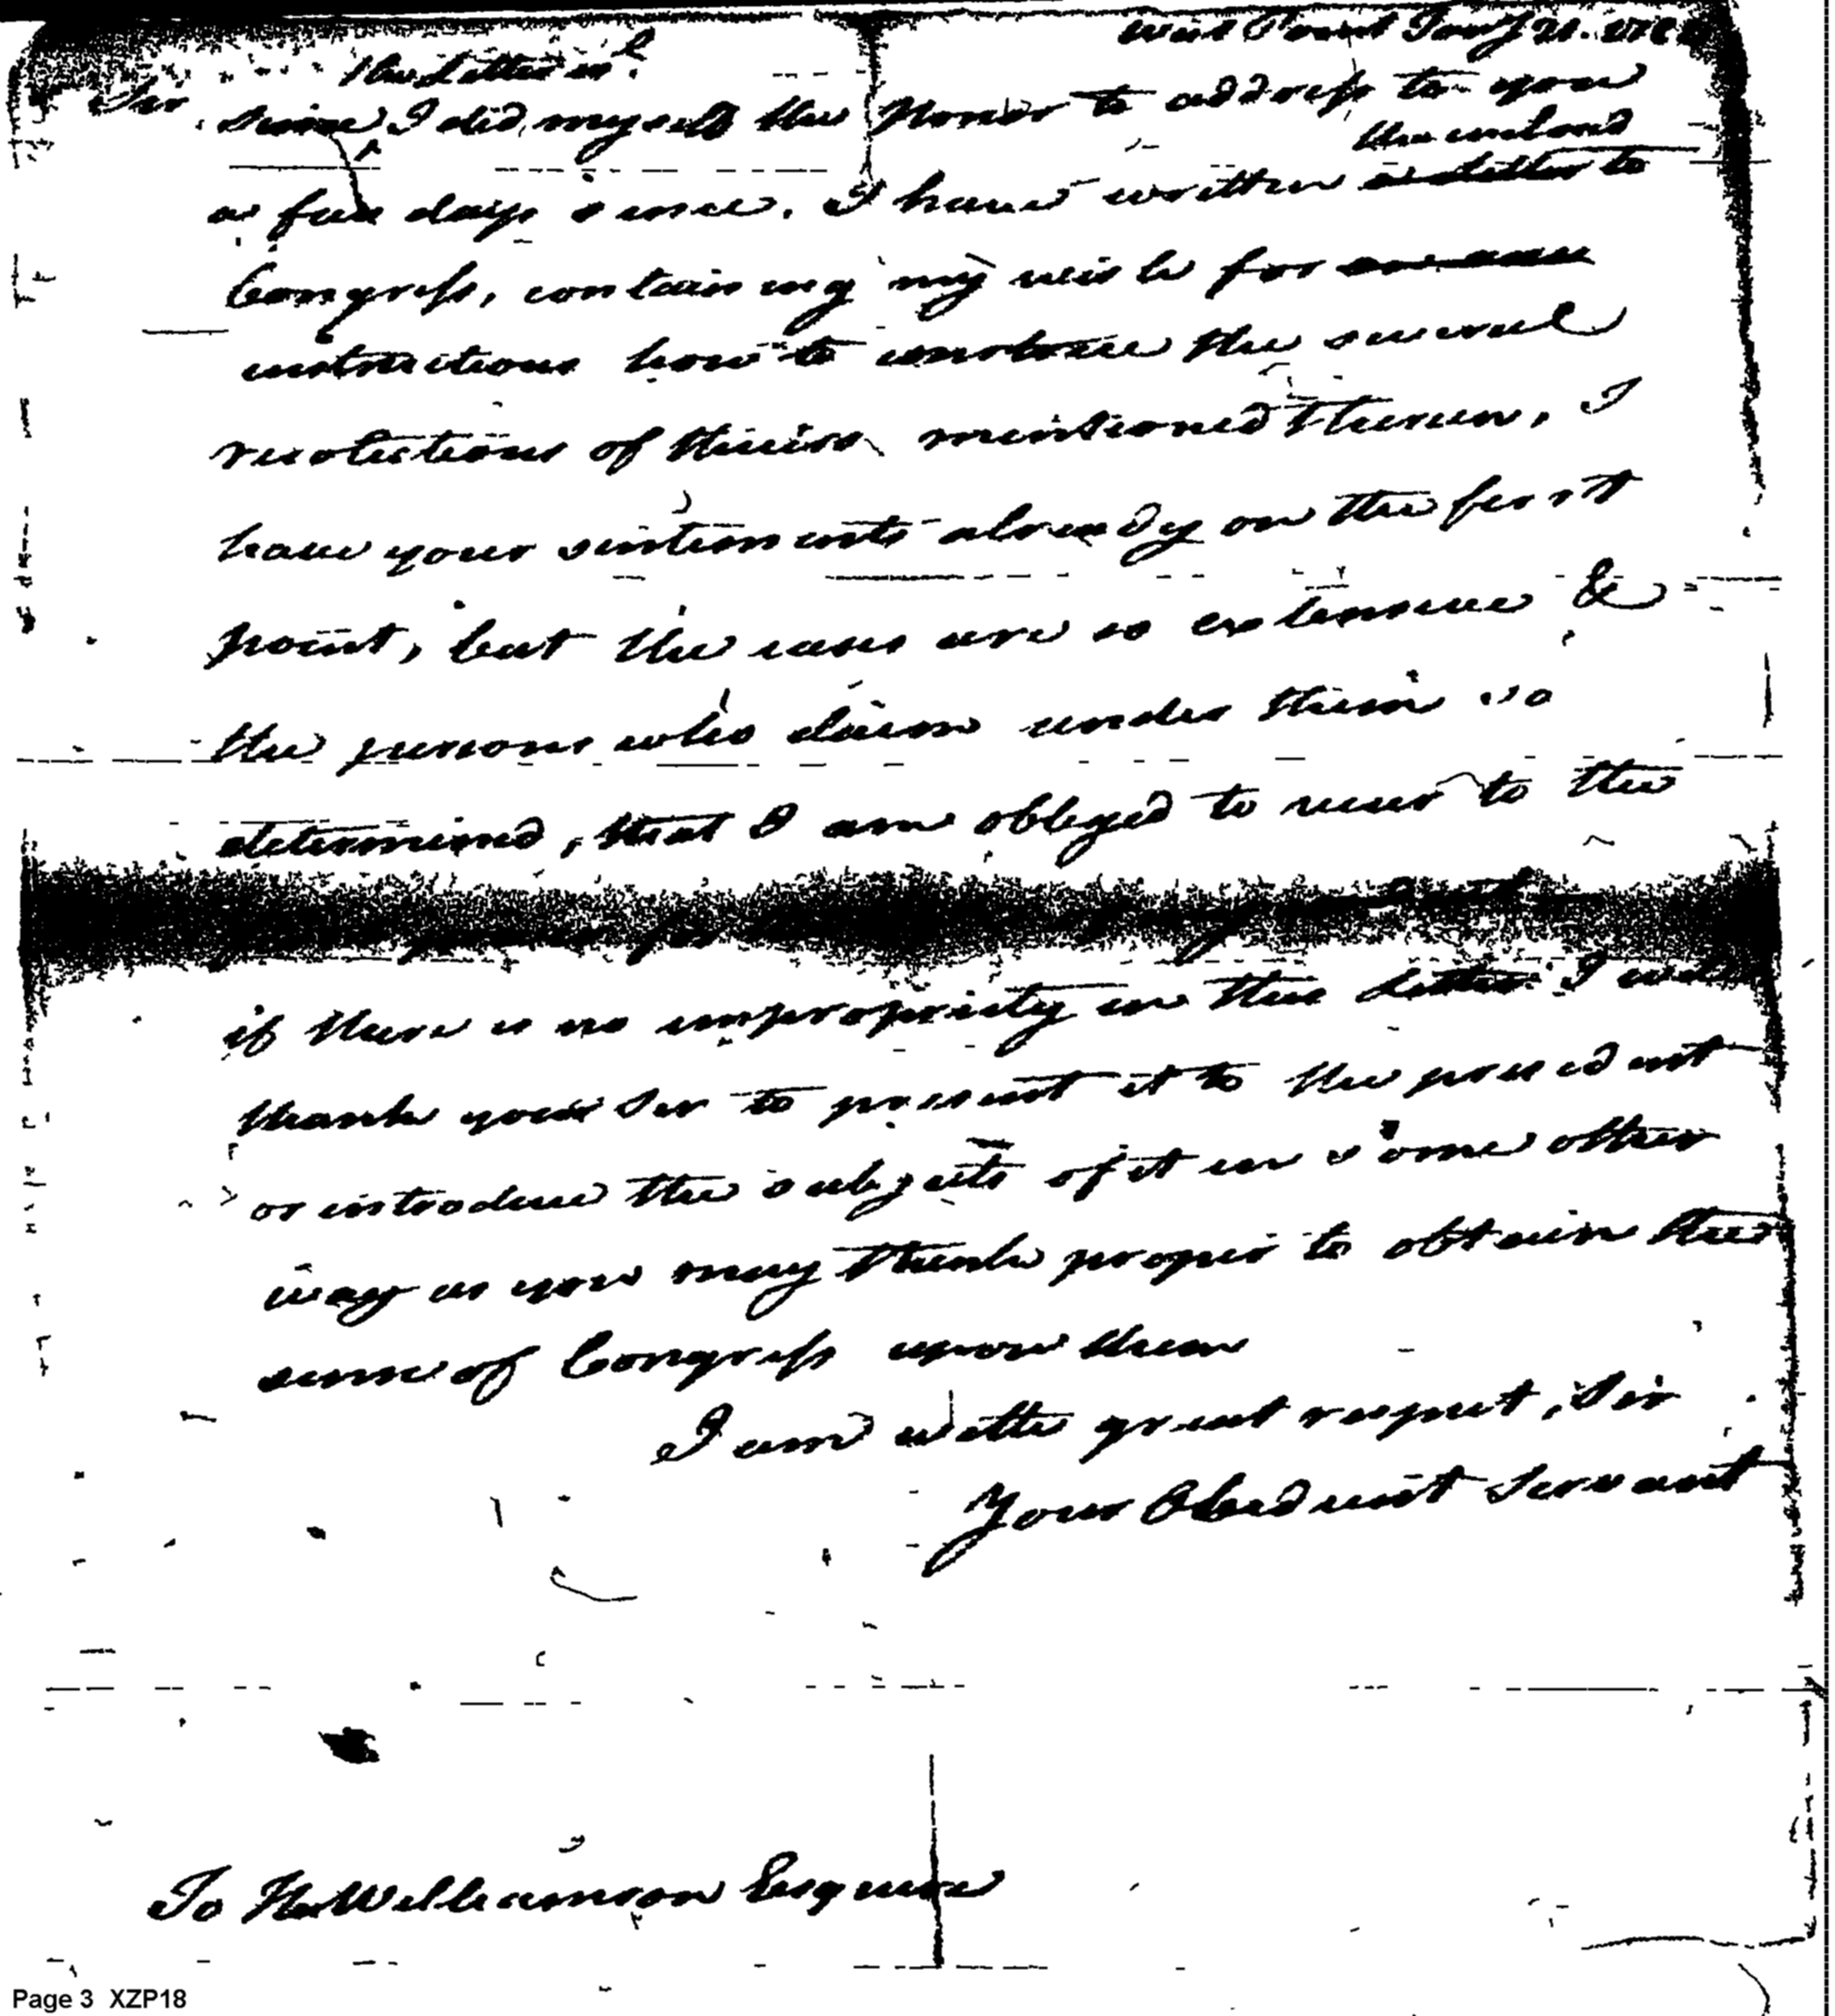 West Point Jany 21. 178
the Letter in
Sir. since I did myself the Honor to address to you
the inclosed
a few days since. I have written a letter to
Congress, containing my wish for
instructions how to construe the several
resolutions of theirs mentioned therein, I
have your sentiments already on the first
point, but the cases are so extensive &
the persons who claim under them so
determined, that I am obliged to recur to the
if there is no impropriety in this letter I will
thank you Sir to present it to the president
or introduce the subjects of it in some other
way as you may think proper to obtain the
sense of Congress upon them
I am with great respect, Sir
Your Obedient Servant
To H Williamson Esquire
Page 3 XZP18